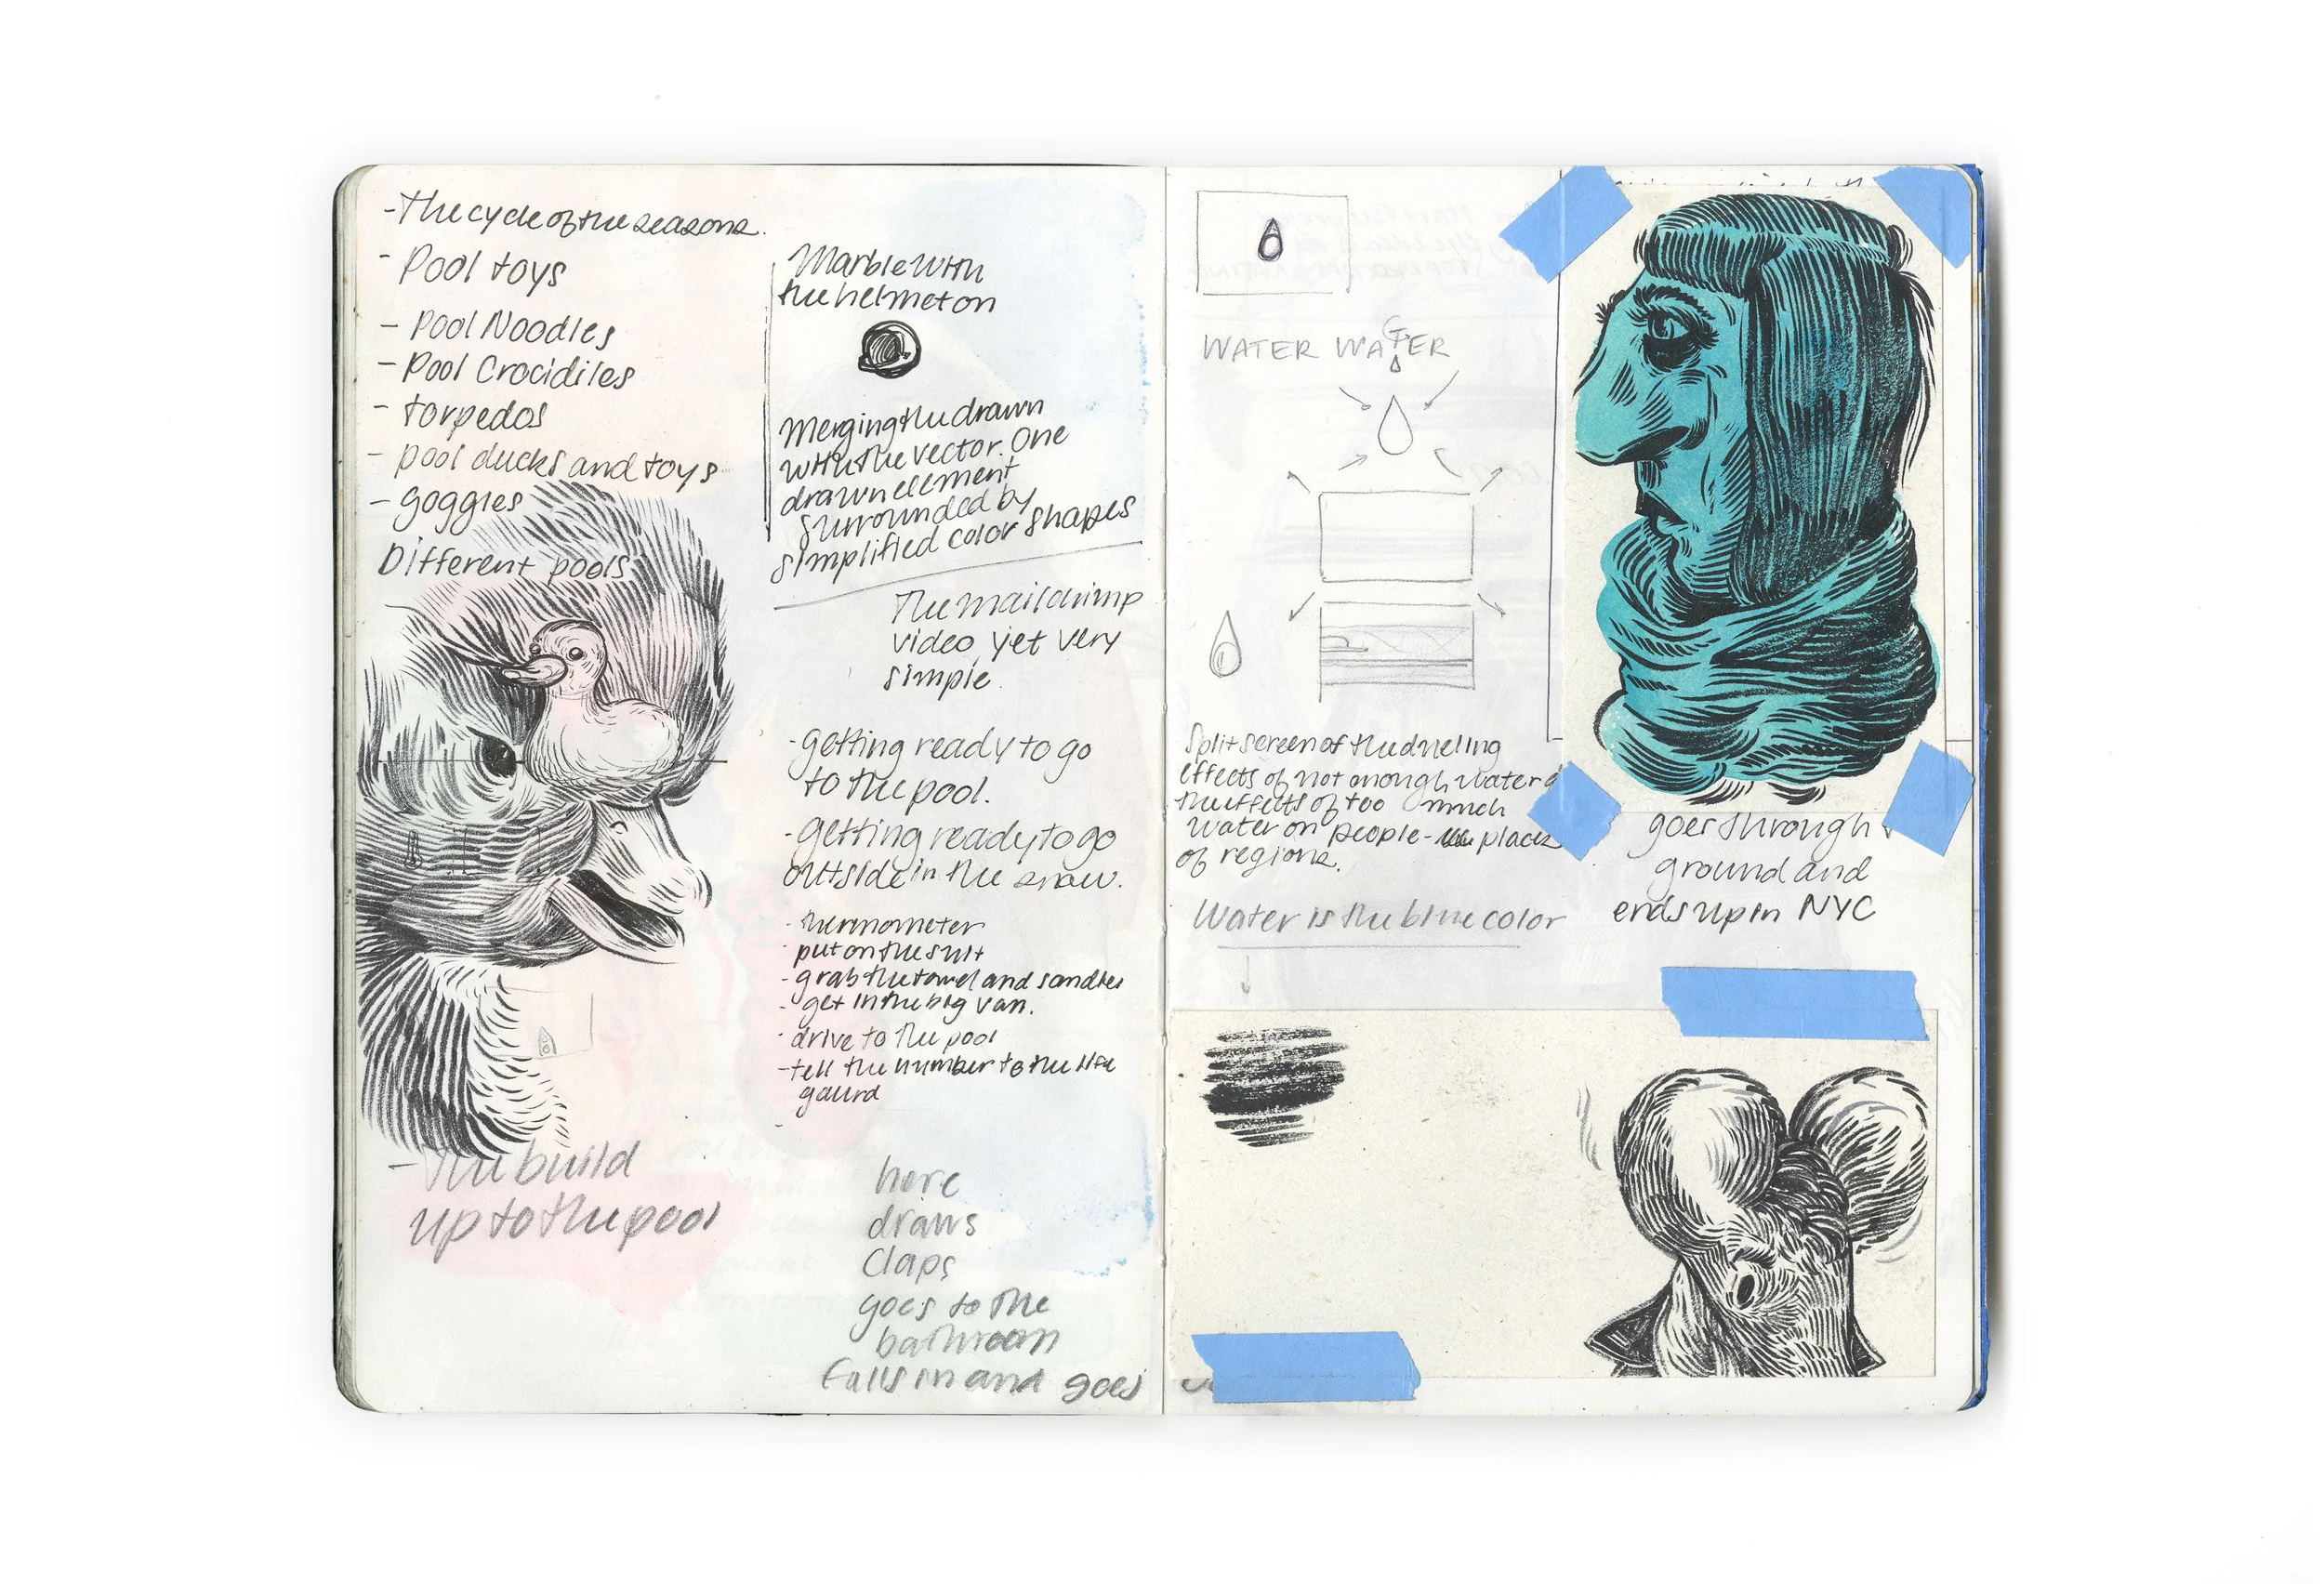 - The cycle of the seasons.
- Pool toys
- Pool Noodles
- Pool Crocidiles
- torpedos
- pool ducks and toys
- goggles
Different pools
- The build
up to the pool
Marble with
the helmet on
Merging the drawn
with the vector. One
drawn element
surrounded by
simplified color shapes
The mailchimp
video, yet very
simple.
- getting ready to go
to the pool.
- getting ready to go
outside in the snow.
- thermometer
- put on the suit
- grab the towel and sandles
- get in the big van.
- drive to the pool
- tell the number to the life
gaurd
here
draws
Claps
goes to the
bathroom
falls in and goes
WATER WATER
Split screen of the dueling
effects of not enough water &
the effects of too much
water on people - places
of regions.
Water is the blue color
goes through
ground and
ends up in NYC